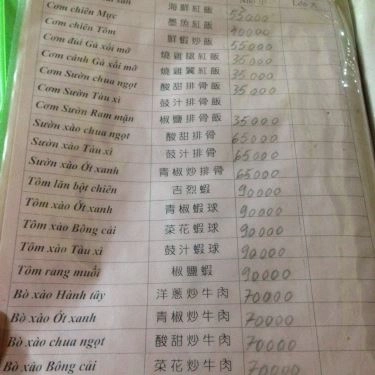 sản 海鮮紅飯 55000
Cơm chiên Mực 墨魚紅飯
Cơm chiên Tôm 鮮蝦炒飯 55000
Cơm đùi Gà xối mỡ 燒雞腿紅飯 35000
Cơm cánh Gà xối mỡ 燒雞翼紅飯 35000
Cơm Sườn chua ngọt 酸甜排骨飯 35000
Cơm Sườn Tàu xì 豉汁排骨飯
Cơm Sườn Ram mặn 椒鹽排骨飯 35000
Sườn xào chua ngọt 酸甜排骨 65000
Sườn xào Tàu xì 豉汁排骨 65000
Sườn xào Ớt xanh 青椒炒排骨 65000
Tôm lăn bột chiên 吉烈蝦 90000
Tôm xào Ớt xanh 青椒蝦球 90000
Tôm xào Bông cải 菜花蝦球 90000
Tôm xào Tàu xì 豉汁蝦球 90000
Tôm rang muối 椒鹽蝦 90000
Bò xào Hành tây 洋蔥炒牛肉 70000
Bò xào Ớt xanh 青椒炒牛肉 70000
Bò xào chua ngọt 酸甜炒牛肉 70000
Bò xào Bông cải 菜花炒牛肉 70000